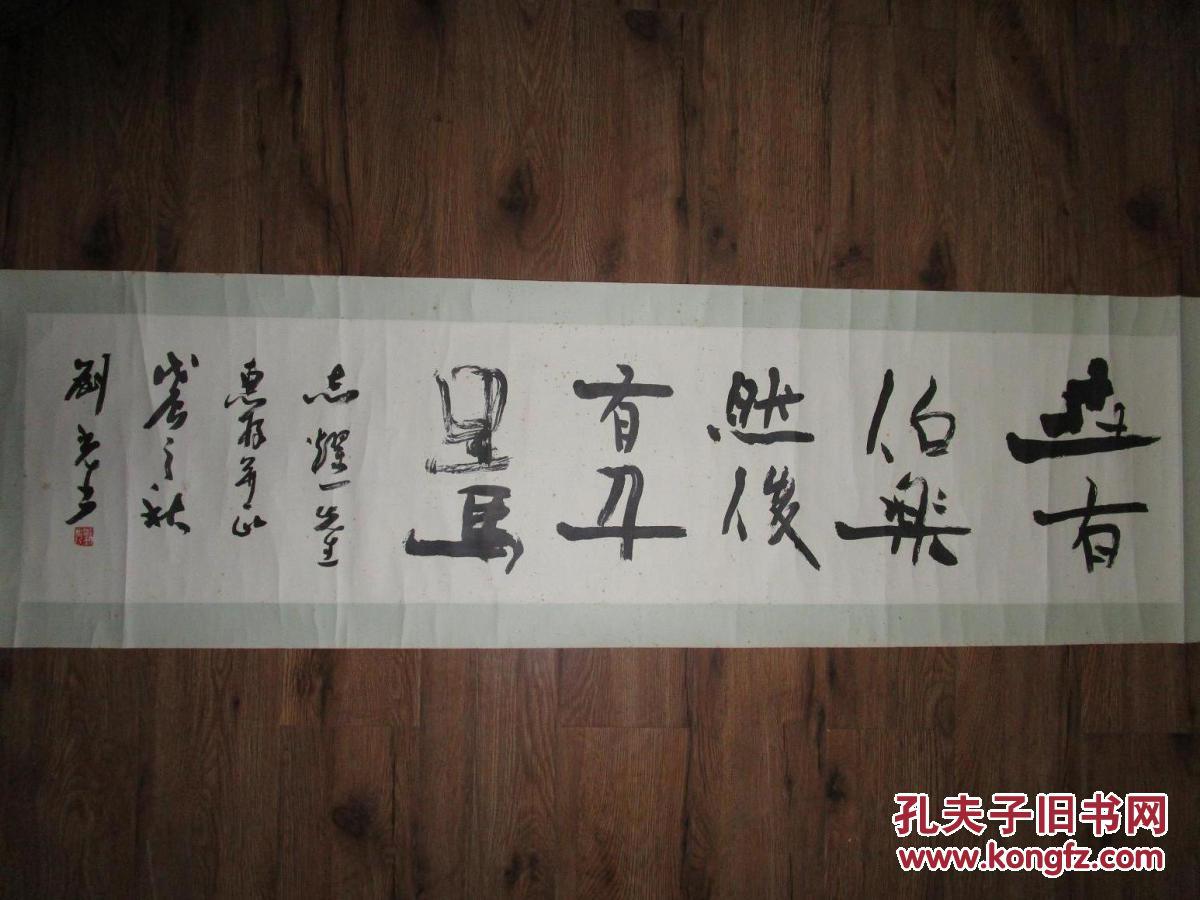 世有
伯樂
然後
有千
里馬
志耀先生
惠存并正
戊辰之秋
劉
孔夫子旧书网
www.kongfz.com